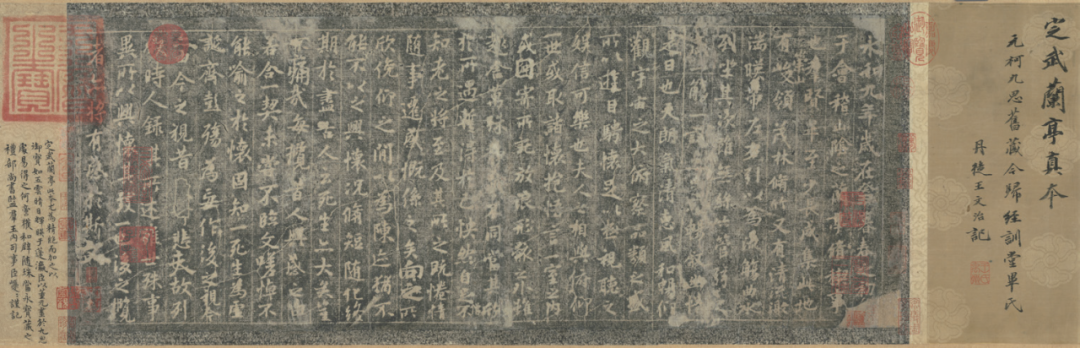 定武蘭亭真本
元柯九思舊藏今歸經訓堂畢氏
丹徒王文治記
永和九年歲在癸丑暮春之初
于會稽山陰之蘭亭脩禊事
也羣賢畢至少長咸集此地
有峻領茂林脩竹又有清流激
湍暎帶左右引以為流觴曲水
列坐其次
一觴一詠亦足以暢敘幽情
是日也天朗氣清惠風和暢仰
觀宇宙之大俯察品類之盛
所以遊目騁懷足以極視聽之
娛信可樂也夫人之相與俯仰
一世或取諸懷抱悟言一室之內
或因寄所託放浪形骸之外雖
趣舍萬殊靜躁不同當其欣
於所遇暫得於己怏然自足不
知老之將至及其所之既惓情
隨事遷感慨係之矣向之所
欣俛仰之閒以為陳迹猶不
能不以之興懷況脩短隨化終
期於盡古人云死生亦大矣豈
不痛哉每攬昔人興感之由
若合一契未嘗不臨文嗟悼不
能喻之於懷固知一死生為虛
誕齊彭殤為妄作後之視今
亦由今之視昔悲夫故列
敘時人錄其所述雖世殊事
異所以興懷其致一也後之攬
者亦將有感於斯文
定武蘭亭此本尤為精絕而加之以
御寶如五雲晴日輝映于蓬瀛臣以董元畫於九思
處易得之何啻獲和璧隨珠當永寶藏之
禮部尚書監羣玉內司事臣巙巙謹記